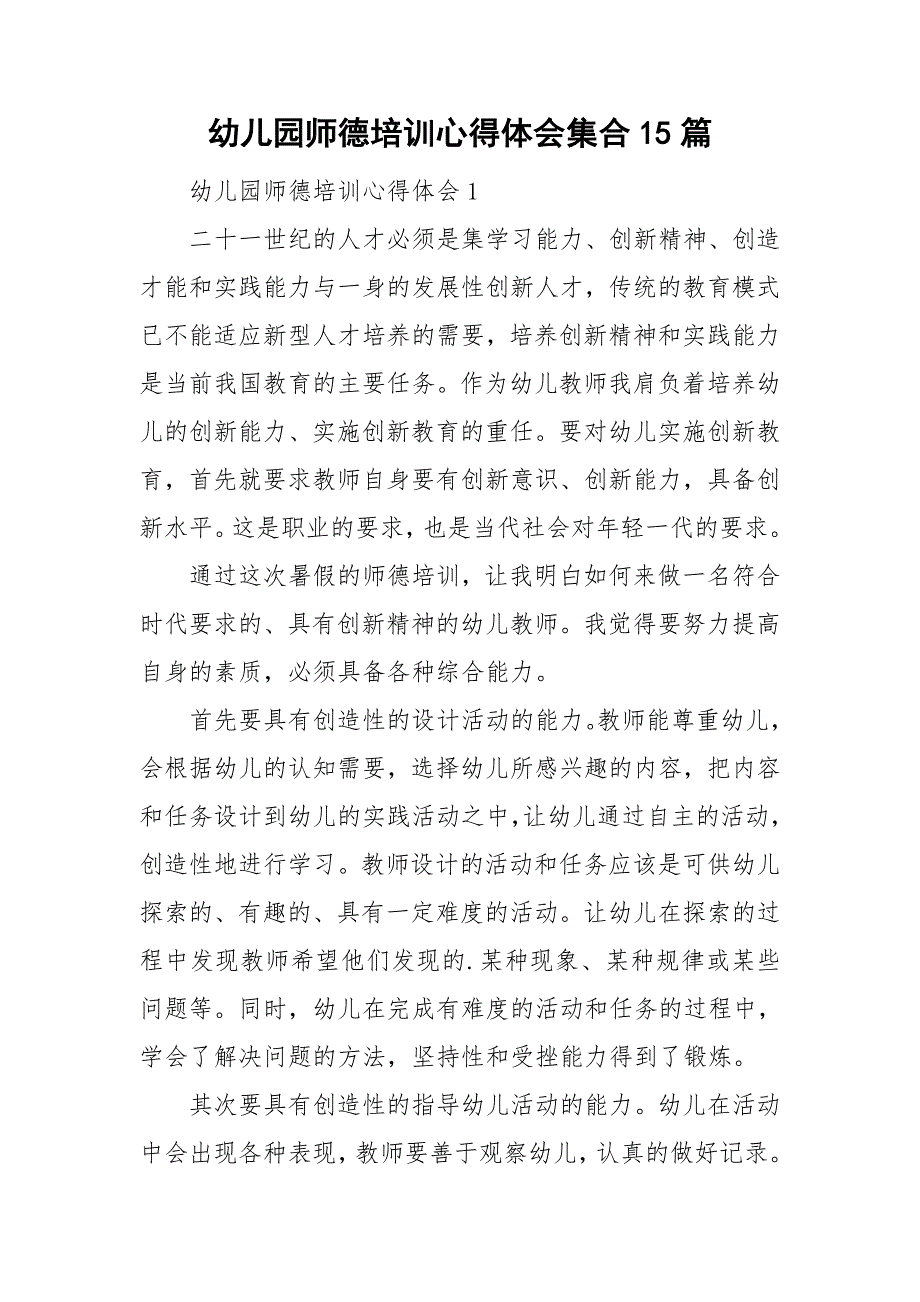 幼儿园师德培训心得体会集合15篇
幼儿园师德培训心得体会1
二十一世纪的人才必须是集学习能力、创新精神、创造
才能和实践能力与一身的发展性创新人才，传统的教育模式
已不能适应新型人才培养的需要，培养创新精神和实践能力
是当前我国教育的主要任务。作为幼儿教师我肩负着培养幼
儿的创新能力、实施创新教育的重任。要对幼儿实施创新教
育，首先就要求教师自身要有创新意识、创新能力，具备创
新水平。这是职业的要求，也是当代社会对年轻一代的要求。
通过这次暑假的师德培训，让我明白如何来做一名符合
时代要求的、具有创新精神的幼儿教师。我觉得要努力提高
自身的素质，必须具备各种综合能力。
首先要具有创造性的设计活动的能力。教师能尊重幼儿，
会根据幼儿的认知需要，选择幼儿所感兴趣的内容，把内容
和任务设计到幼儿的实践活动之中，让幼儿通过自主的活动，
创造性地进行学习。教师设计的活动和任务应该是可供幼儿
探索的、有趣的、具有一定难度的活动。让幼儿在探索的过
程中发现教师希望他们发现的.某种现象、某种规律或某些
问题等。同时，幼儿在完成有难度的活动和任务的过程中，
学会了解决问题的方法，坚持性和受挫能力得到了锻炼。
其次要具有创造性的指导幼儿活动的能力。幼儿在活动
中会出现各种表现，教师要善于观察幼儿，认真的做好记录。